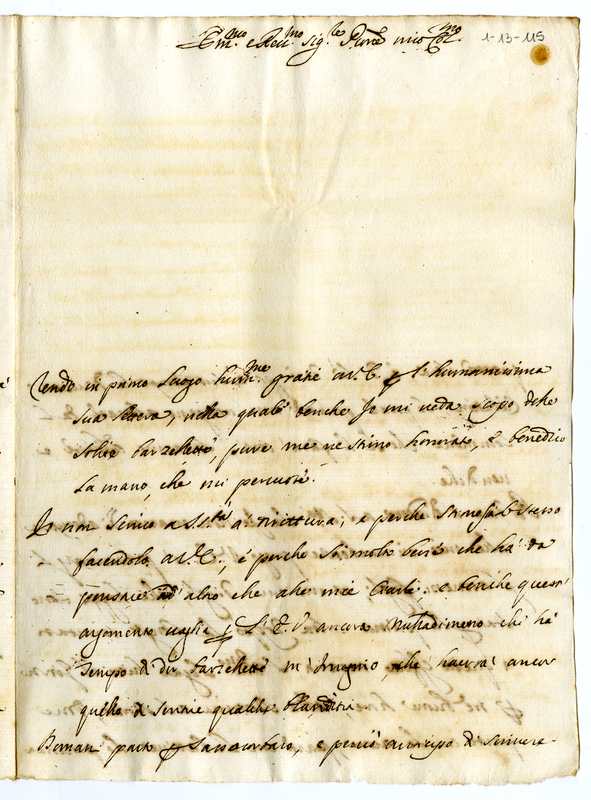 Em.mo e Rev.mo Sig.re P.rone mio Col.mo
1-13-115
Rendo in primo luogo hum.me gratie a V.E. p l'humanissima
sua lettera, nella quale benche Io mi veda scopo delle
solite barzellette, pure me ne stimo honorato, e benedico
la mano, che mi percuote.
Io non scrivo a S.S.tà a drittura, e perche stimo
facendolo a V.E., e perche so molto bene che ha da
pensare ad altro che alle mie Carte. e benche quest'
argomento vaglia p V.E. ancora Nulladimeno chi ha
tempo di dir barzellette m'imagino, che haverà ancor
quello di sentire qualche
Diman parto p, e perciò anticipo di scrivere